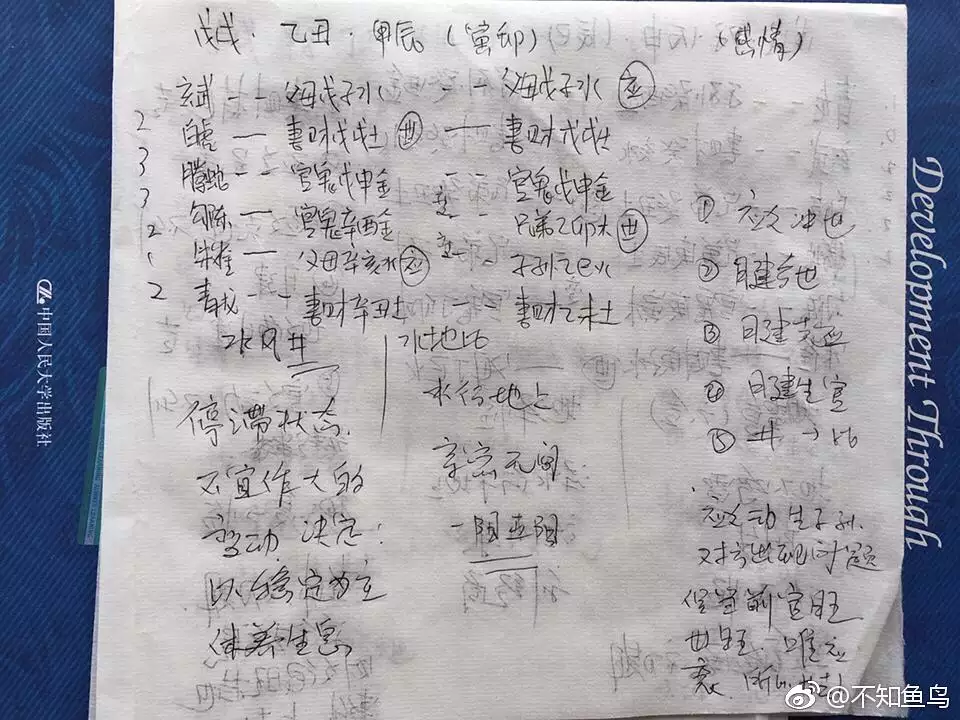 戊戌·乙丑·甲辰(寅卯) (感情)
玄武 — — 父母戊子水 — — 父母戊子水 应
2 白虎 — 妻财戊戌土 世 — 妻财戊戌土
3 腾蛇 — — 官鬼戊申金 — — 官鬼戊申金
3 勾陈 — 官鬼辛酉金 — — 兄弟乙卯木 世
2 朱雀 — 父母辛亥水 应 — — 子孙乙巳火
2 青龙 — — 妻财辛丑土 — — 妻财乙未土
水风井 水地比
停滞状态,
不宜作大的
变动 决定:
以稳定为主
休养生息
水行地上
亲密无间
① 应爻冲世
② 日建合世
③ 日建
④ 日建生官
⑤ 井→比
应爻动 生子孙.
对方出现问题
官旺
世旺. 唯应
衰.
Development Through
中国人民大学出版社
@不知鱼鸟